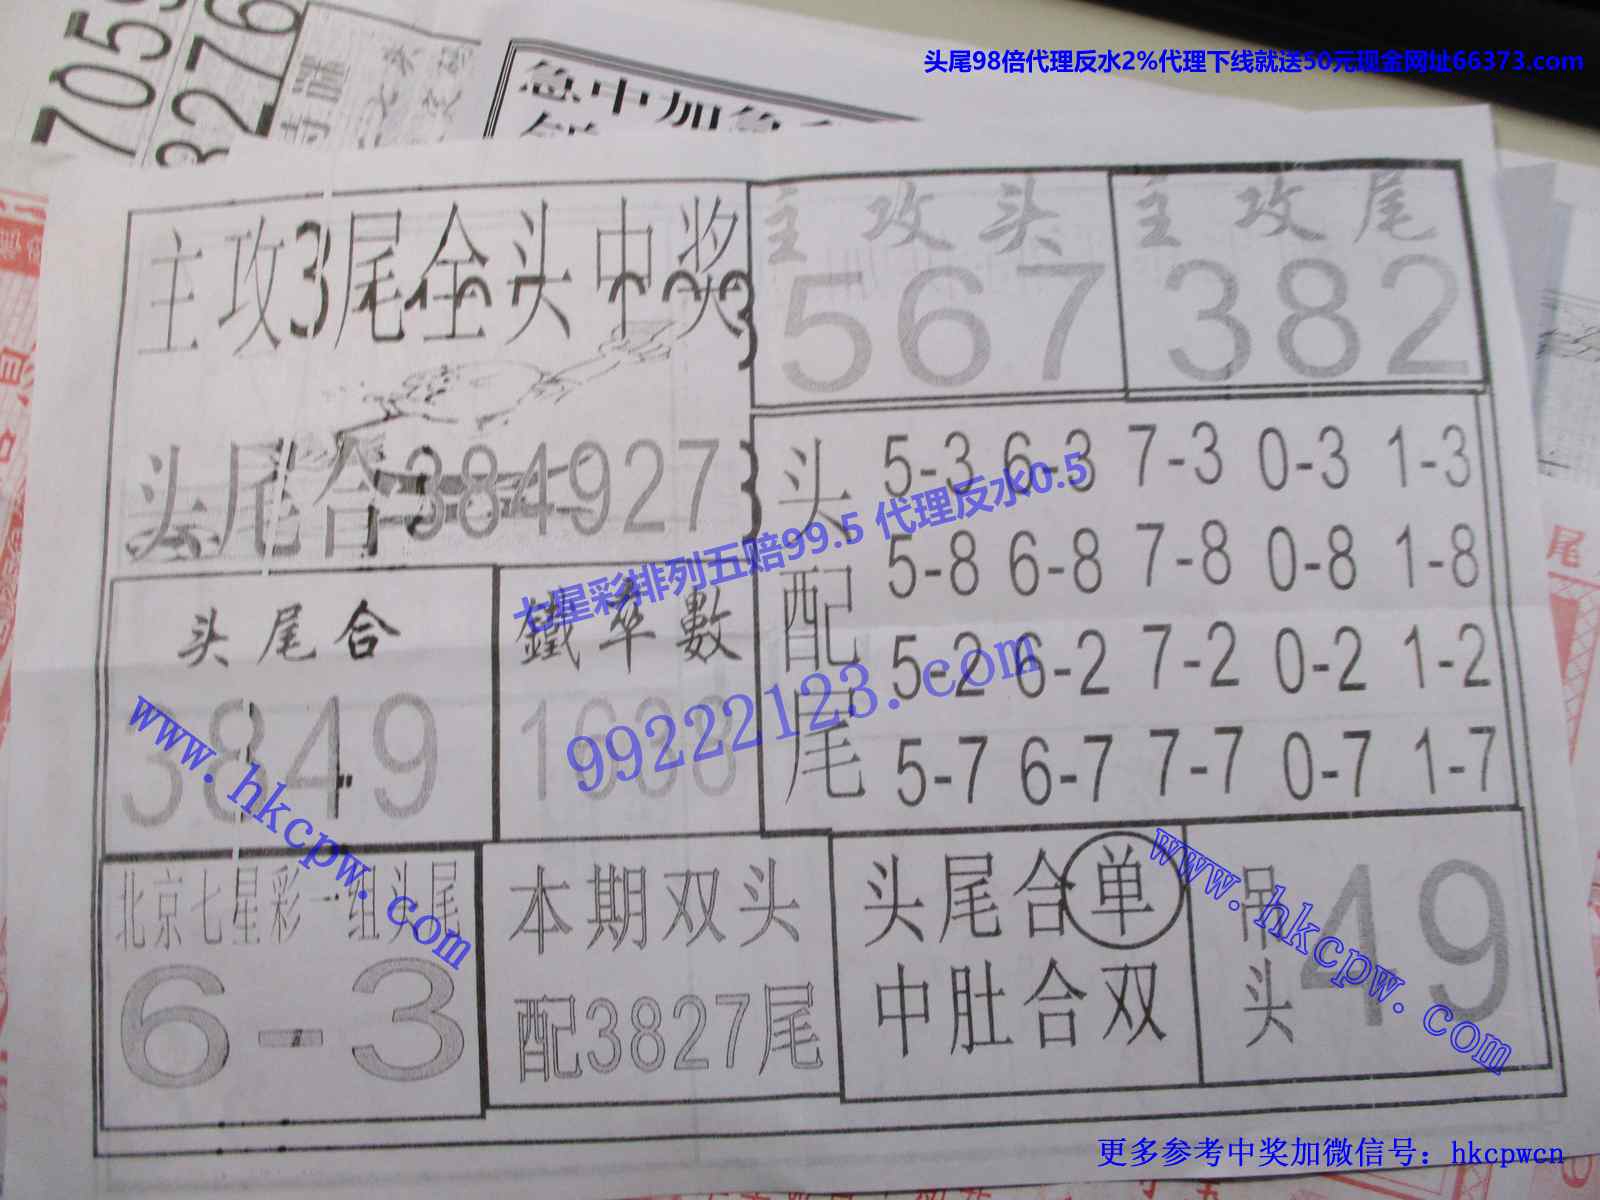 头尾98倍代理反水2%代理下线就送50元现金网址66373.com
7059
3276
急中加急
主攻3尾全头中奖
头尾合384927
主攻头
567
主攻尾
382
头配尾
5-3 6-3 7-3 0-3 1-3
5-8 6-8 7-8 0-8 1-8
5-2 6-2 7-2 0-2 1-2
5-7 6-7 7-7 0-7 1-7
七星彩排列五赔99.5 代理反水0.5
99222123.com
头尾合
3849
鐵卒數
www.hkcpw.com
北京七星彩一组头尾
6-3
本期双头
配3827尾
头尾合单
中肚合双
吊头
49
www.hkcpw.com
尾
更多参考中奖加微信号：hkcpwcn